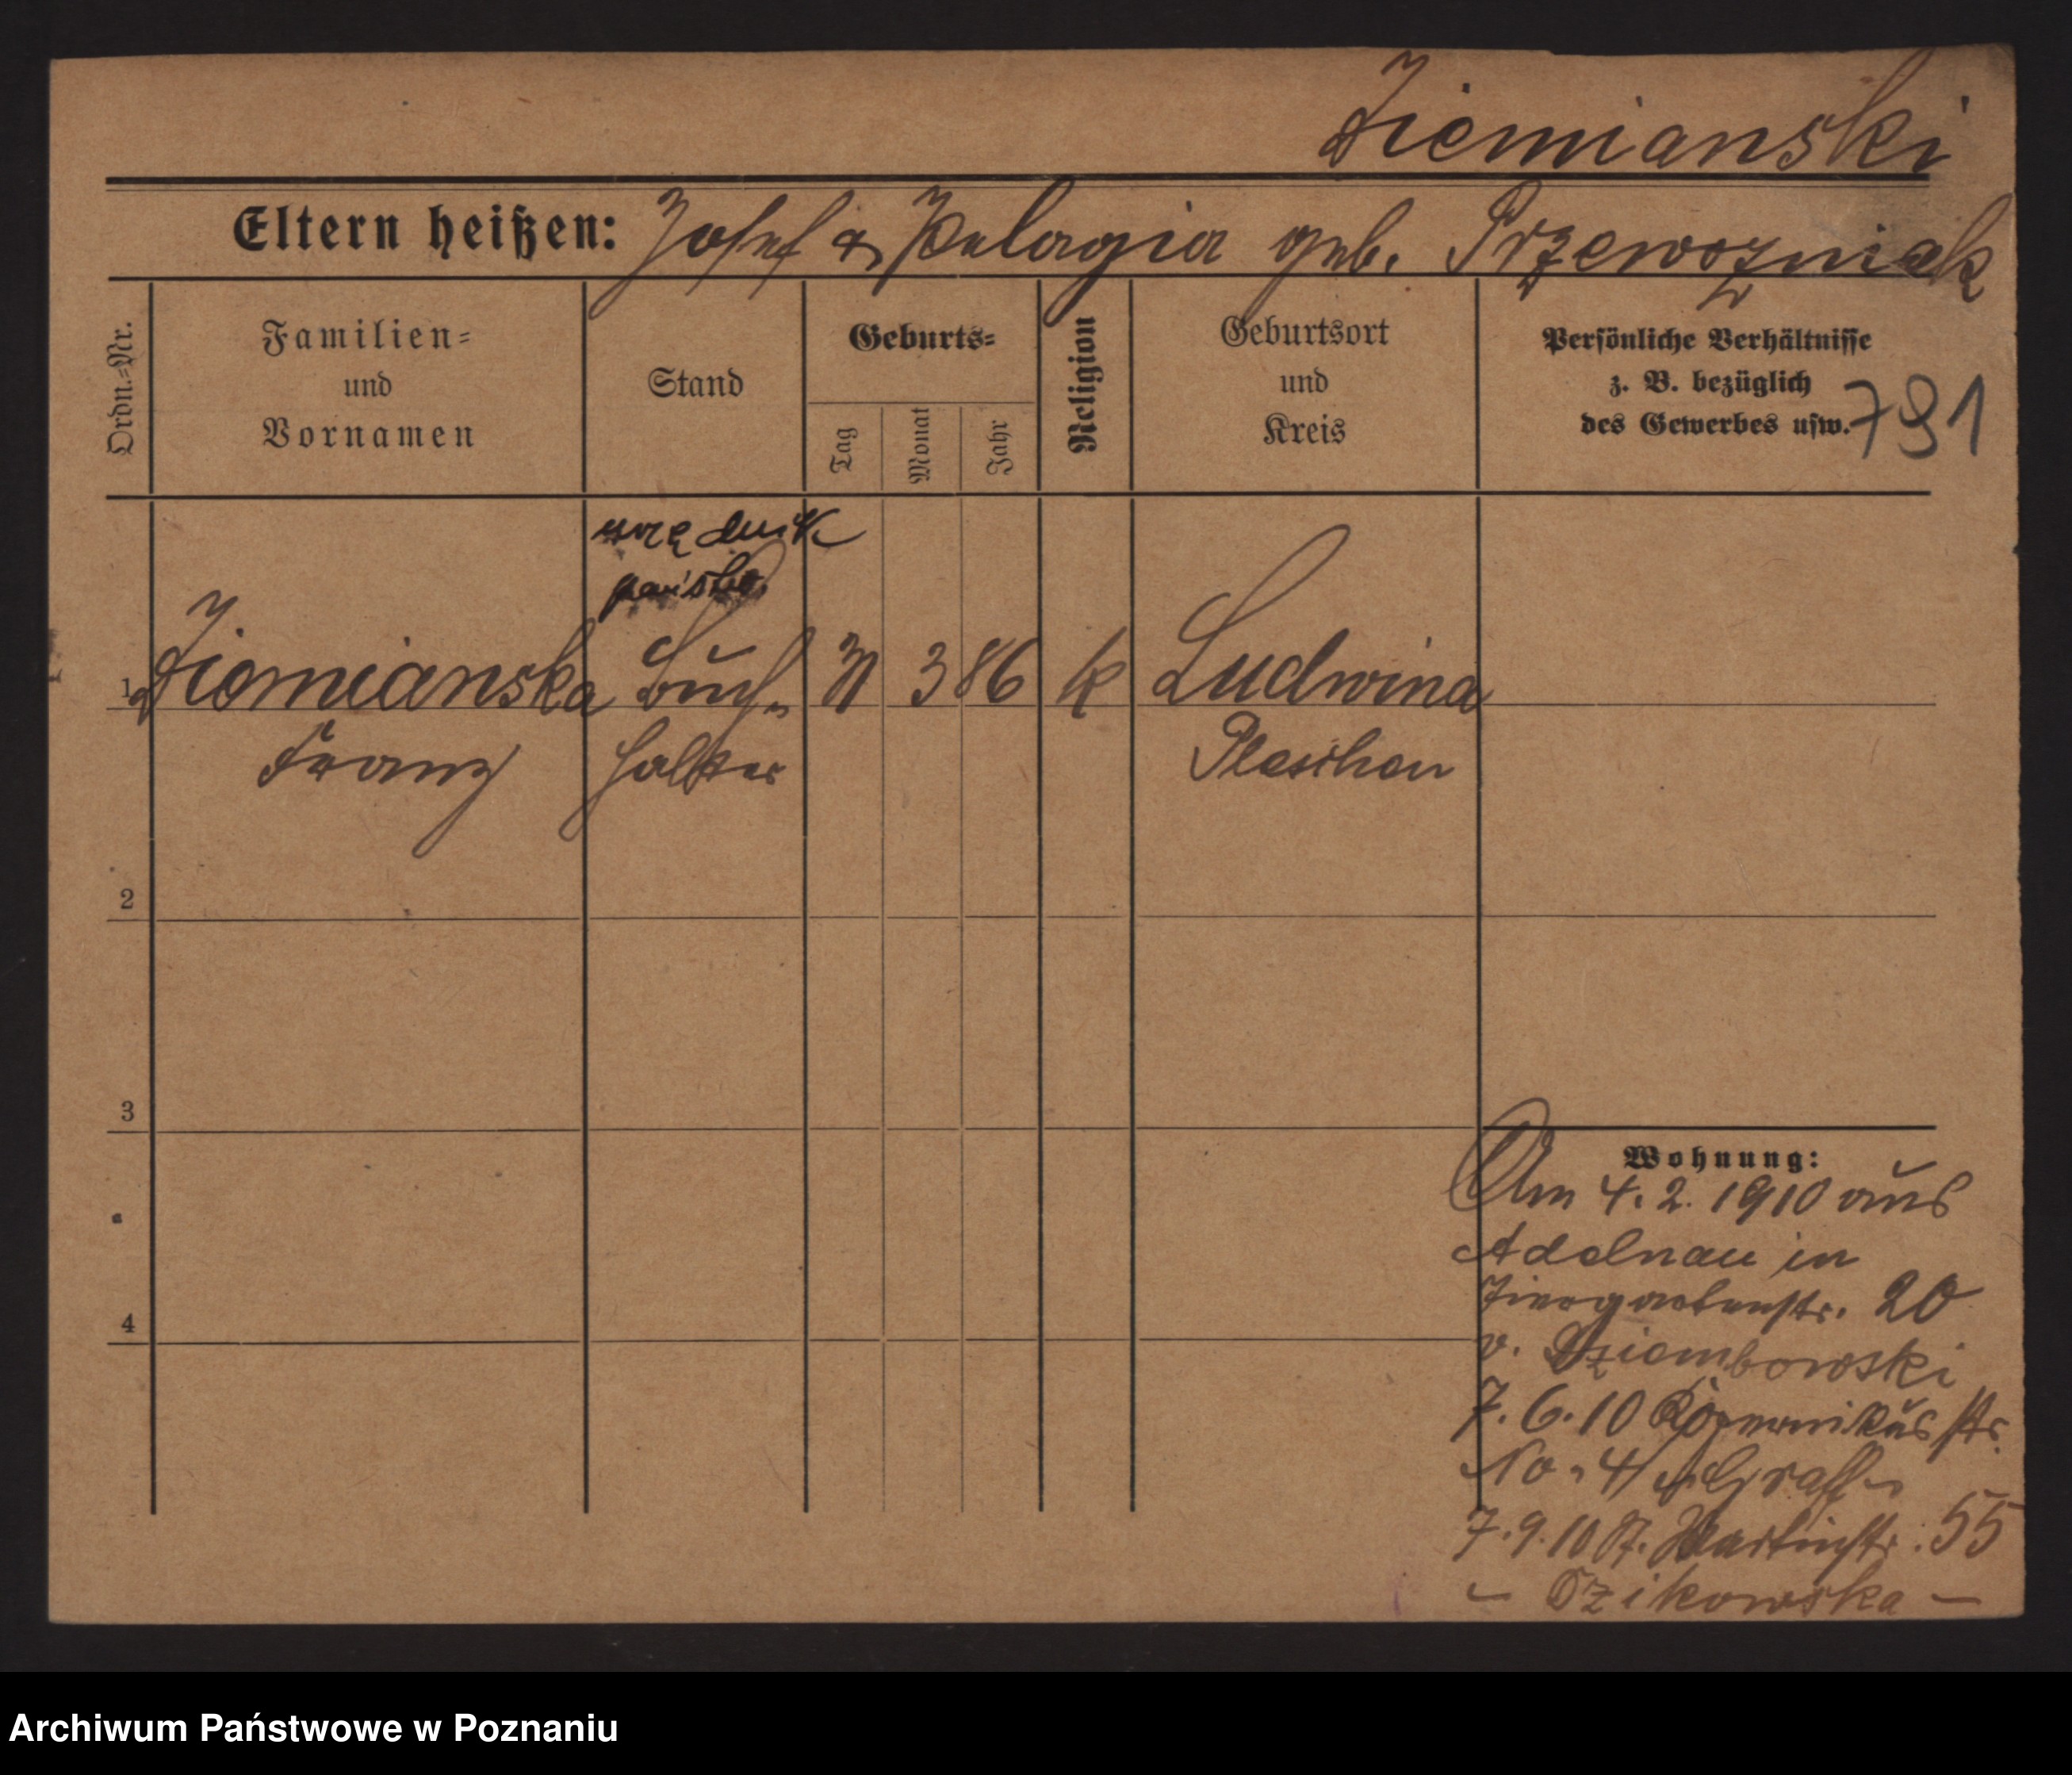 Ziemianski
Eltern heißen: Josef & Pelagia geb. Przewozniak
Ordn.-Nr.
Familien-
und
Vornamen
Stand
Geburts-
Tag
Monat
Jahr
Religion
Geburtsort
und
Kreis
Persönliche Verhältnisse
z. B. bezüglich
des Gewerbes usw.
791
urzędnik
państw.
1 Ziemianska Buch- 31 3 86 k Ludwina
Franz halter Pleschen
2
3
4
Wohnung:
Am 4. 2. 1910 aus
Adelnau in
Tiergartenstr. 20
v. Dziembowski
7. 6. 10 Kopernikusstr.
No. 4
7. 9. 10 St. Martinstr. 55
- Czikowska -
Archiwum Państwowe w Poznaniu